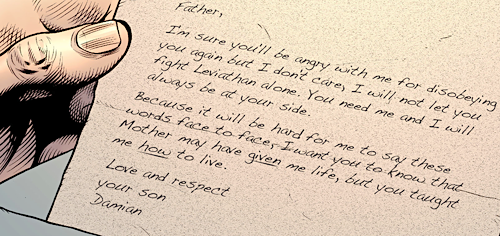 Father,
I'm sure you'll be angry with me for disobeying
you again but I don't care, I will not let you
fight Leviathan alone. You need me and I will
always be at your side.
Because it will be hard for me to say these
words face to face, I want you to know that
Mother may have given me life, but you taught
me how to live.
Love and respect
your son
Damian